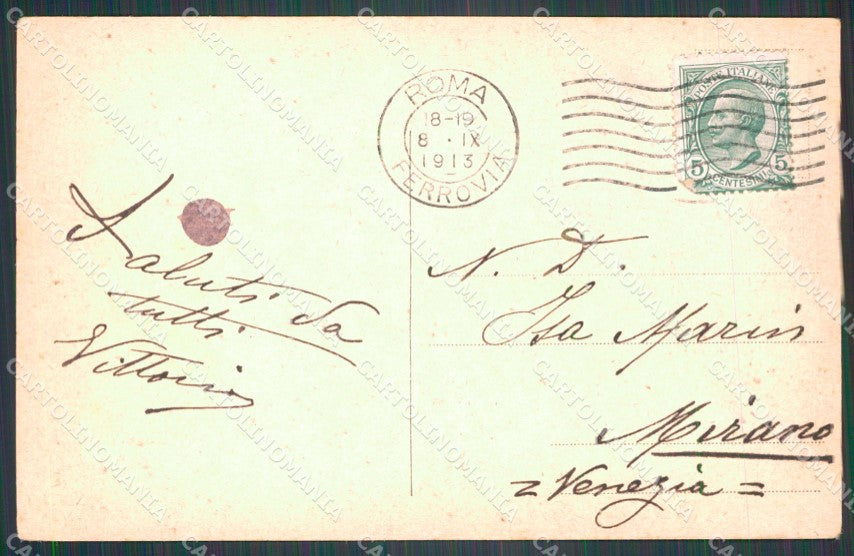 ROMA
18-19
8 · IX
1913
FERROVIA
POSTE ITALIANE
5 5
CENTESIMI
Saluti da
tutti
Vittorio
N. D.
Isa Marin
Mirano
= Venezia =
CARTOLINOMANIA